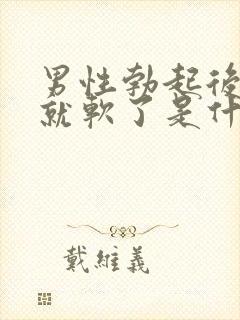 男性勃起後
就軟了是什
戴維義